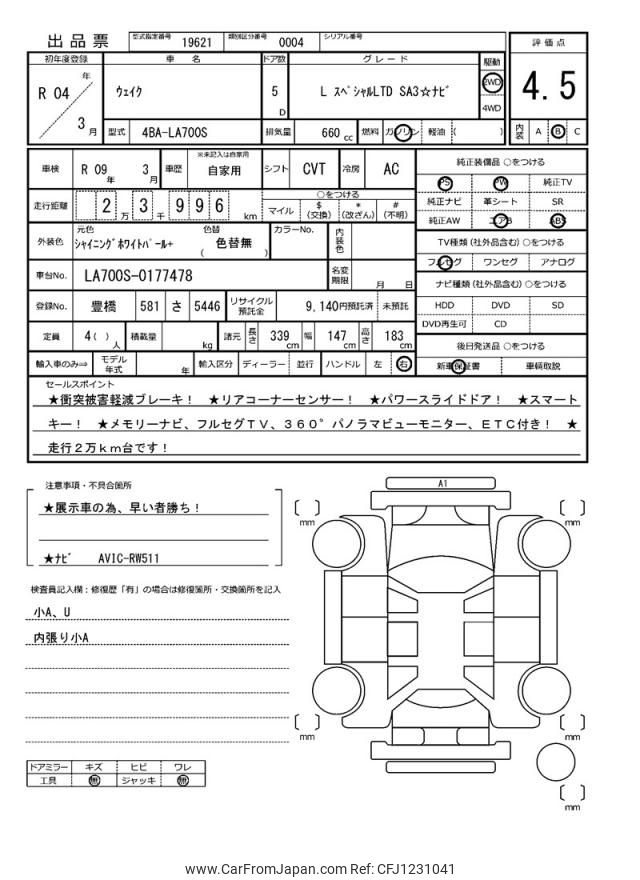 出品票
型式指定番号 19621 類別区分番号 0004 シリアル番号
初年度登録 車名 ドア数 グレード 駆動 評価点
R 04 年 3 月
ウェイク 5 D L スペシャルLTD SA3☆ナビ 2WD 4WD
4.5
型式 4BA-LA700S 排気量 660 cc 燃料 ガソリン 軽油 ( )
内装 A B C
車検 R 09 年 3 月 車歴 ※未記入は自家用 自家用 シフト CVT 冷房 AC
走行距離 2 万 3 千 9 9 6 km
○をつける
マイル $ (交換) * (改ざん) # (不明)
外装色 元色 シャイニングホワイトパール+ 色替 ( 色替無 ) カラーNo. 内装色
車台No. LA700S-0177478 名変期限 月 日
登録No. 豊橋 581 さ 5446 リサイクル預託金 9,140円預託済 未預託
定員 4( ) 人 積載量 kg 諸元 長さ 339 cm 幅 147 cm 高さ 183 cm
輸入車のみ⇒ モデル年式 年 輸入区分 ディーラー 並行 ハンドル 左 右
純正装備品 ○をつける
PS PW 純正TV
純正ナビ 革シート SR
純正AW エアB ABS
TV種類 (社外品含む) ○をつける
フルセグ ワンセグ アナログ
ナビ種類 (社外品含む) ○をつける
HDD DVD SD
DVD再生可 CD
後日発送品 ○をつける
新車保証書 車輌取説
セールスポイント
★衝突被害軽減ブレーキ! ★リアコーナーセンサー! ★パワースライドドア! ★スマート
キー! ★メモリーナビ、フルセグTV、360°パノラマビューモニター、ETC付き! ★
走行2万km台です!
注意事項・不具合箇所
★展示車の為、早い者勝ち!
★ナビ AVIC-RW511
検査員記入欄:修復歴「有」の場合は修復箇所・交換箇所を記入
小A、U
内張り小A
ドアミラー キズ ヒビ ワレ
工具 無 ジャッキ 無
A1
mm
mm
mm
mm
mm
www.CarFromJapan.com Ref: CFJ1231041